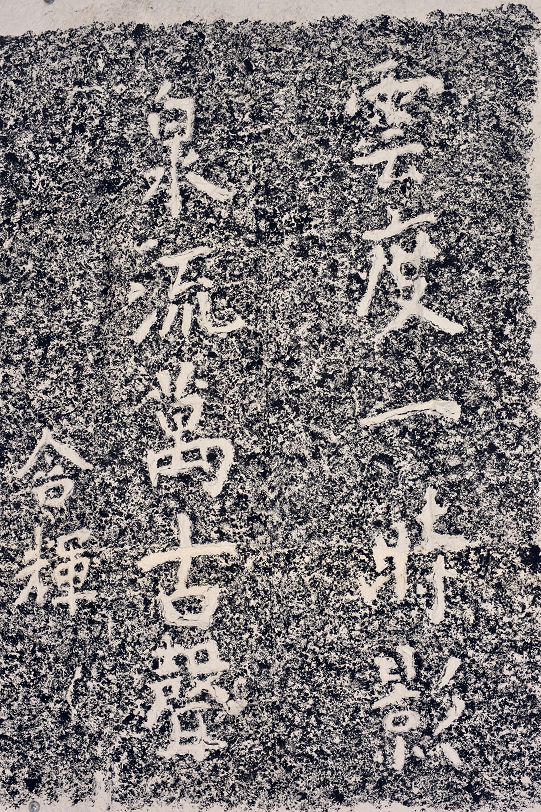 雲度一影
泉流萬古聲
含輝